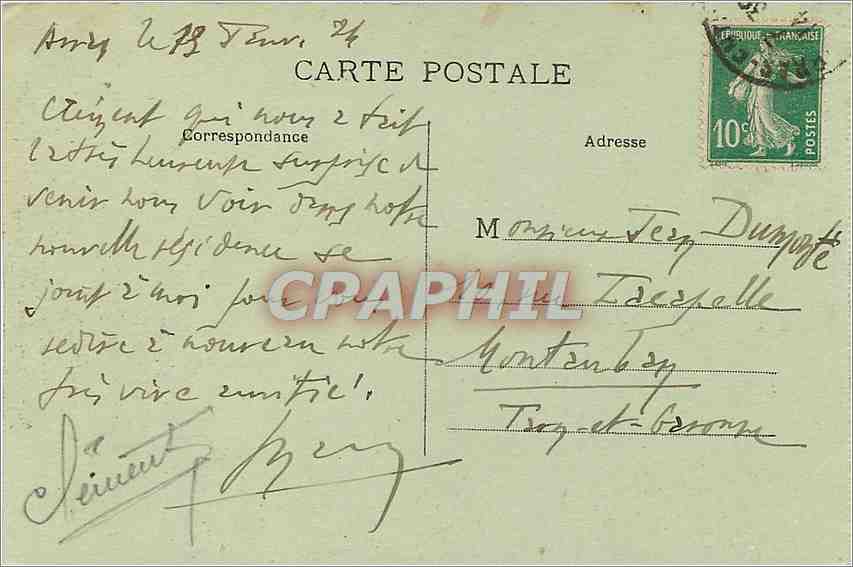 le 19 Janv. 24
CARTE POSTALE
Clément qui nous a fait
Correspondance
la très heureuse surprise de
venir nous voir dans notre
nouvelle résidence se
joint à moi pour vous
redire à nouveau notre
très vive amitié.
Clément
RÉPUBLIQUE FRANÇAISE
10c
POSTES
Adresse
Monsieur Jean
rue Lacapelle
Montauban
Tarn-et-Garonne
CPAPHIL